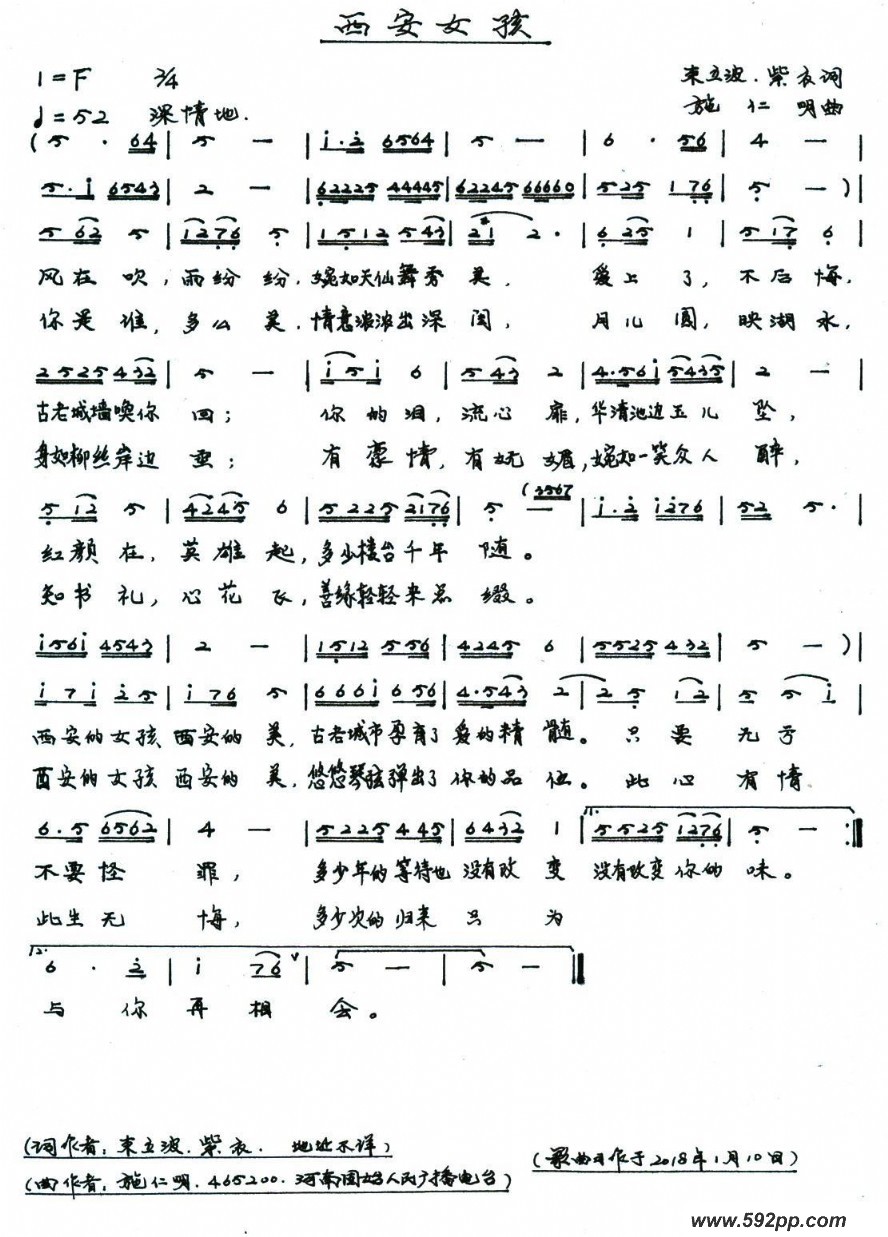 西安女孩
1=F 2/4 束立波.紫衣词
♩=52 深情地. 施仁明曲
(5 · 64 | 5 — | i·2 6564 | 5 — | 6 · 56 | 4 — |
5·i 6543 | 2 — | 62225 44445 | 62245 66660 | 525 176 | 5 — ) |
5 62 5 | 1276 5 | 1512 543 | 2i 2· | 6 25 1 | 5 17 6 |
风在吹，雨纷纷，婉如天仙舞秀美， 爱上了，不后悔，
你是谁，多么美，情意浓浓出深闺， 月儿圆，映湖水，
2525 432 | 5 — | i 5 i 6 | 5 43 2 | 4·56i 5435 | 2 — |
古老城墙唤你回； 你的泪，流心扉，华清池边玉儿坠，
身如柳丝岸边垂； 有豪情，有妩媚，婉如一笑众人醉，
5 12 5 | 4245 6 | 5225 2176 | 5 — (3567 | i·2 i276 | 52 5· |
红颜在，英雄起，多少楼台千年随。
知书礼，心花飞，善缘轻轻来点缀。
i56i 4543 | 2 — | 1512 556 | 4245 6 | 5525 432 | 5 — ) |
i 7 i 2 5 | i 76 5 | 666i 6 56 | 4·543 2 | 2 5 12 | 5 5 i |
西安的女孩 西安的美，古老城市孕育了爱的精髓。只要无亏
西安的女孩 西安的美，悠悠琴弦弹出了你的品位。此心有情
6·5 6562 | 4 — | 5225 445 | 6432 1 | 1. 5525 1276 | 5 — :||
不要怪罪， 多少年的等待也没有改变 没有改变你的味。
此生无悔， 多少次的归来只为
2. 6 · 2 | i 76 ∨ | 5 — | 5 — ||
与你再相会。
(词作者：束立波.紫衣. 地址不详)
(曲作者：施仁明.465200.河南固始人民广播电台)
(歌曲写作于2018年1月10日)
www.592pp.com